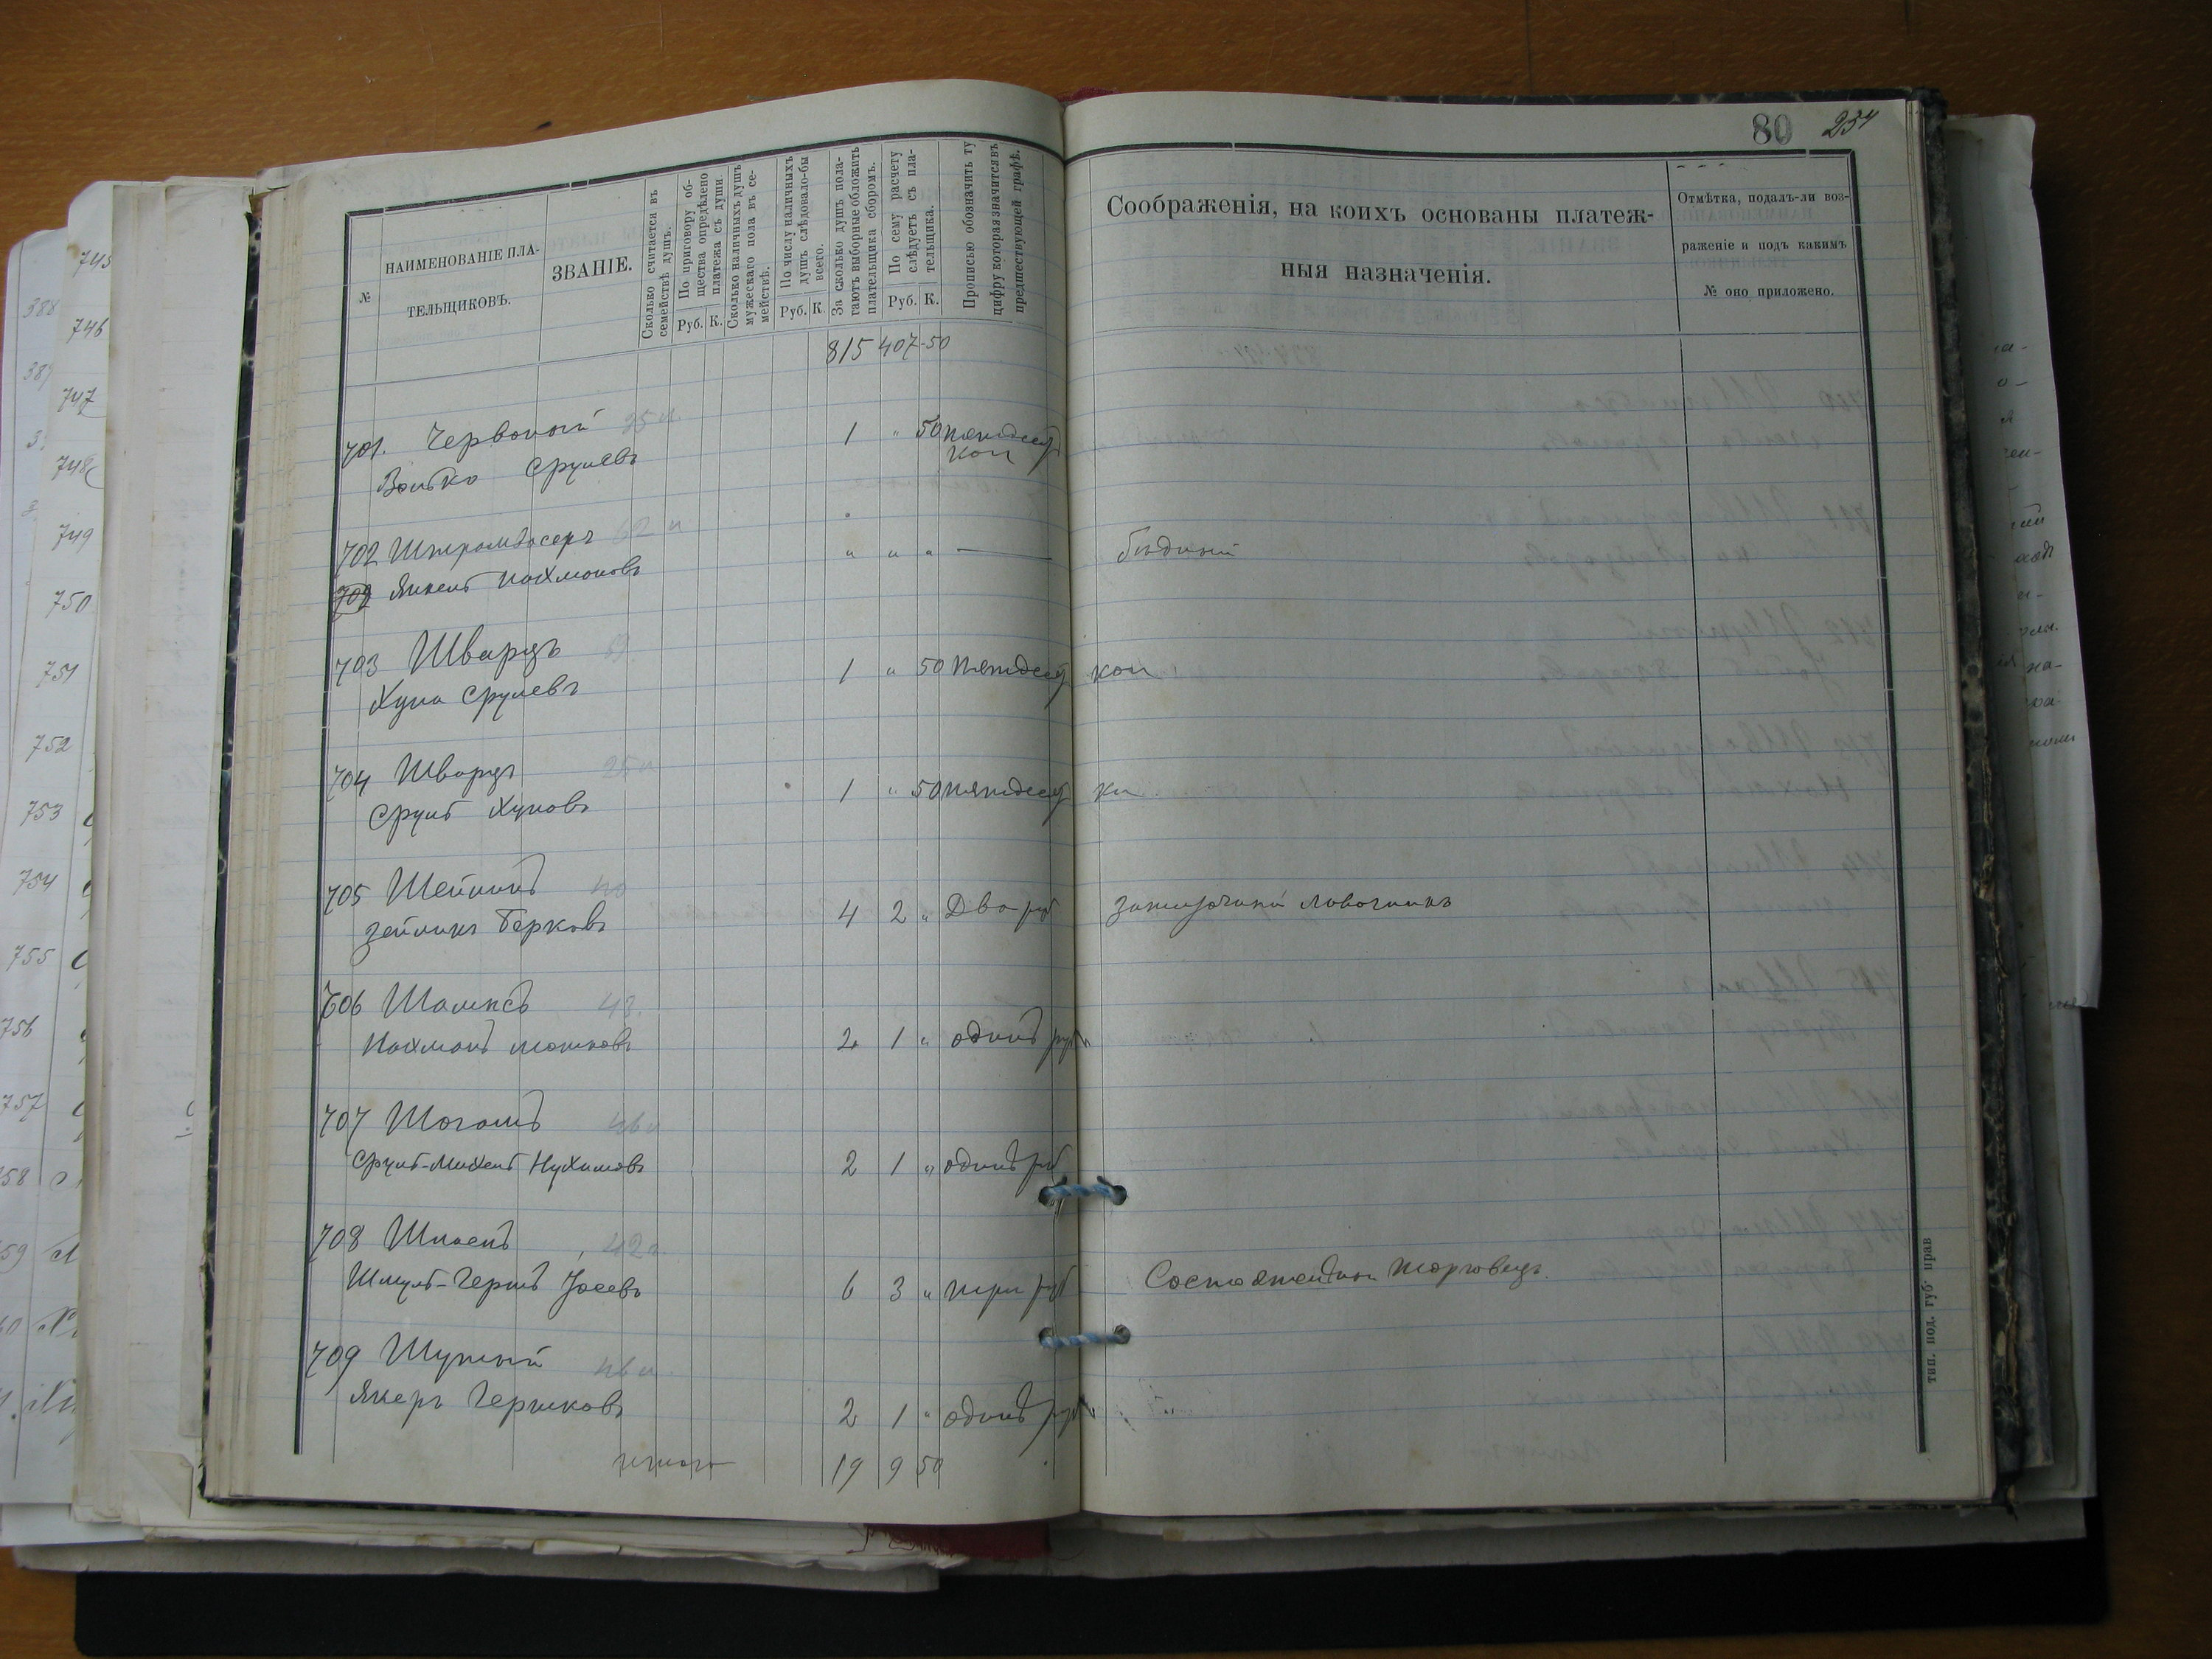 80 254
№
НАИМЕНОВАНІЕ ПЛА-
ТЕЛЬЩИКОВЪ.
ЗВАНІЕ.
Сколько считается въ
семействѣ душъ.
По приговору об-
щества опредѣлено
платежа съ души
Руб. К.
Сколько наличныхъ душъ
мужескаго пола въ се-
мействѣ.
По числу наличныхъ
душъ слѣдовало-бы
всего.
Руб. К.
За сколько душъ пола-
гаютъ выборные обложить
плательщика сборомъ.
По сему расчету
слѣдуетъ съ пла-
тельщика.
Руб. К.
Прописью обозначить ту
цифру которая значится въ
предшествующей графѣ.
Соображенія, на коихъ основаны платеж-
ныя назначенія.
Отмѣтка, подалъ-ли воз-
раженіе и подъ какимъ
№ оно приложено.
815 407-50
701. Червоный 25 л.
Волько Срулевъ 1 " 50 пятдесят
коп
702 Штромвасеръ 62 л
702 Янкель Нахмановъ " " " — бѣдный
703 Шварцъ 59
Хуна Срулевъ 1 " 50 пятдесят коп
704 Шварцъ 25 л
Сруль Хуновъ 1 " 50 пятдесят кп
705 Шейнинъ 40
Зейликъ Берковъ 4 2 " Два руб зажиточный лавочникъ
706 48.
Нахманъ Мошковъ 2 1 " одинъ руб
707 46 л
Сруль-Михель Нухимовъ 2 1 " одинъ руб
708 42 л.
Шмуль-Гершъ Іосевъ 6 3 " три руб Состоятельный торговецъ.
709 46 л.
Янкеръ Гершковъ 2 1 " одинъ руб
итого 19 9 50
тип. под. губ. прав
745
746
747
748
749
750
751
752
753
754
755
756
757
58
59
60
388